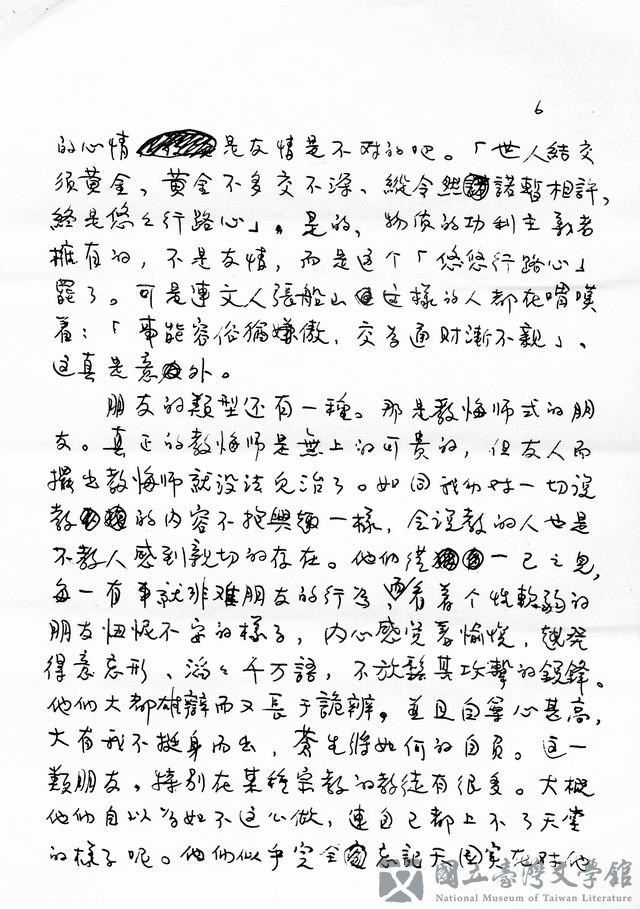 6
的心情是友情是不对的吧。「世人結交
须黃金、黃金不多交不深、縱令然諾暫相許,
終是悠々行路心」。是的、物质的功利主義者
擁有的，不是友情，而是这个「悠悠行路心」
罷了。可是連文人張船山这樣的人都在嘖嘆
着：「事能容俗猶嫌傲，交为通财漸不親」、
这真是意外。
朋友的類型还有一種。那是教悔师式的朋
友。真正的教悔师是無上的可貴的，但友人而
擺出教悔师就没法兒治了。如同我們对一切说
教的内容不抱興趣一樣，会说教的人也是
不教人感到親切的存在。他們從一己之見，
每一有事就非难朋友的行为，而看着个性軟弱的
朋友忸怩不安的樣子，内心感觉着愉悅，越發
得意忘形、滔々千万語，不放鬆其攻擊的銳鋒。
他們大都雄辯而又長于詭辨。並且自尊心甚高，
大有我不挺身而出，蒼生將如何的自負。这一
類朋友。特别在某種宗教的教徒有很多。大概
他們自以为如不这么做，連自己都上不了天堂
的樣子呢。他們似乎完全忘記天国实在对他
國立臺灣文學館
National Museum of Taiwan Literature